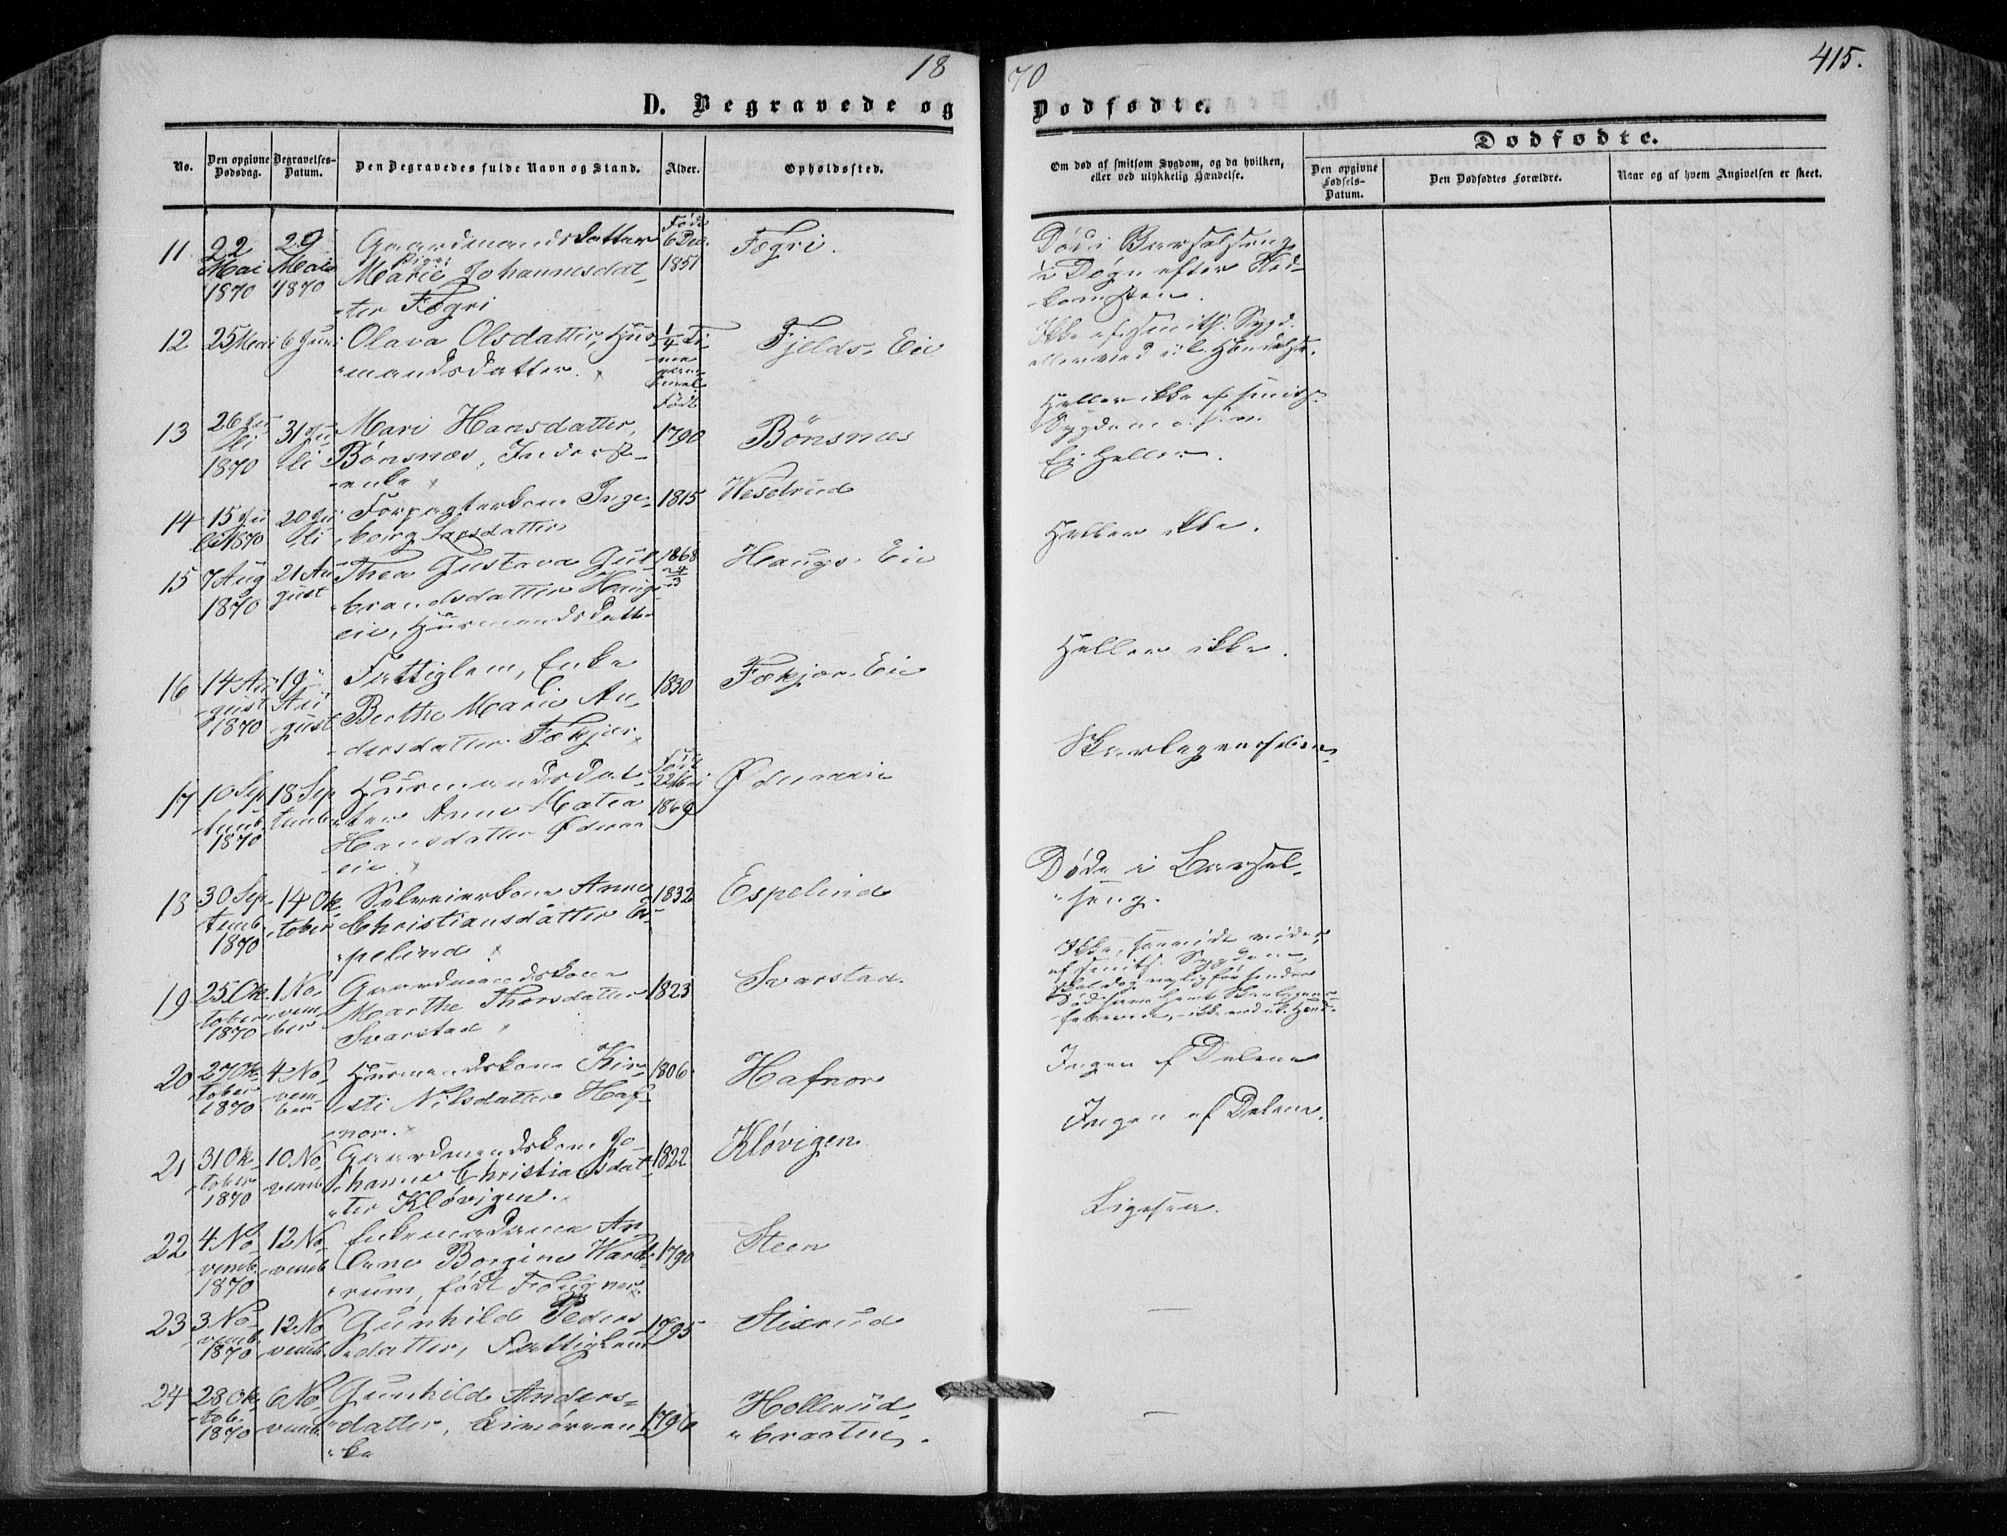 18
70
415.
D. Begravede og
Dødfødte.
Dødfødte.
No.
Den opgivne Dødsdag.
Begravelses-Datum.
Den Begravedes fulde Navn og Stand.
Alder.
Opholdssted.
Om død af smitsom Sygdom, og da hvilken,
eller ved ulykkelig Hændelse.
Den opgivne
Fødsels-
Datum.
Den Dødfødtes Forældre.
Naar og af hvem Angivelsen er skeet.
11
22
Mai
1870
29
Mai
1870
Gaardmandsdatter
Pige
Marie Johannesdat-
ter Fægri
Født
6 Dec.
1851
Fægri.
Død i Barselseng
Døgn efter Ned-
komsten.
12 25 Mai 6 Juni
Olava Olsdatter, Hus-
mandsdatter.
1/4 Ti-
me
Fjelds. Eie
Ikke af smits. Sygd.
eller ved ul. Hændelse.
13
26 Ju-
li
1870
31 Ju-
li
Mari Hansdatter,
Bønsnæs, Inderst-
enke
Født
1790
Bønsnæs
Heller ikke af smits.
Sygdom
Ei heller.
14
15 Ju
li 1870
20 Ju
li
Forpagterkone Inge-
borg Larsdatter
1815
Weselrud
Heller ikke.
15
7 Aug
1870
21 Au
gust
Thea Gustava Gul-
brandsdatter Haugs-
eie, Husmandsdatter
1868
24/3
Haugs. Eie
Heller ikke.
16
14 Au-
gust
1870
19
Au
gust
Fattiglem, Enke
Berthe Marie An-
dersdatter Fækjær
1830
Fækjær. Eie
Skarlagensfeber
17
10 Sep
temb.
1870
18 Sep
temb
Husmandsdat-
ter Anne Matea
Hansdatter Ødema
eie.
Født
22 Mai
1869
Ødemaeie
18
30 Sep-
temb.
1870
14 Ok-
tober
Selveierkone Anne
Christiansdatter Es-
pelund
1832
Espelund
Døde i Barsel-
seng.
19
25 Ok-
tober
1870
1 No-
vem-
ber
Gaardmandskone
Marthe Thorsdatter
Svarstad
1823
Svarstad.
Ikke, saavidt vides,
af smits. Sygdom,
20
27 Ok-
tober
1870
4 No-
vem-
ber
Husmandskone Kir-
sti Nilsdatter Haf-
nor.
1806
Hafnor
Ingen af Delene
21
31 Ok-
tober
1870
10 No-
vemb
Gaardmandskone Jo-
hanne Christiansdat-
ter Kløvigen.
1822
Kløvigen
Ingen af Delene.
22
4 No-
vemb.
1870
12 No-
vemb
Enkemadame An
Borgine
rum, født
1790
Steen
Ligesaa.
23
3 No-
vemb.
1870
12 No
vemb.
Gunhild Peders
datter, Fattiglem
1795
Stixrud
—
24
28 Ok-
tob.
1870
6 No-
vemb.
Gunhild Anders-
datter,
ke
1796
Hollerud-
braaten.
—